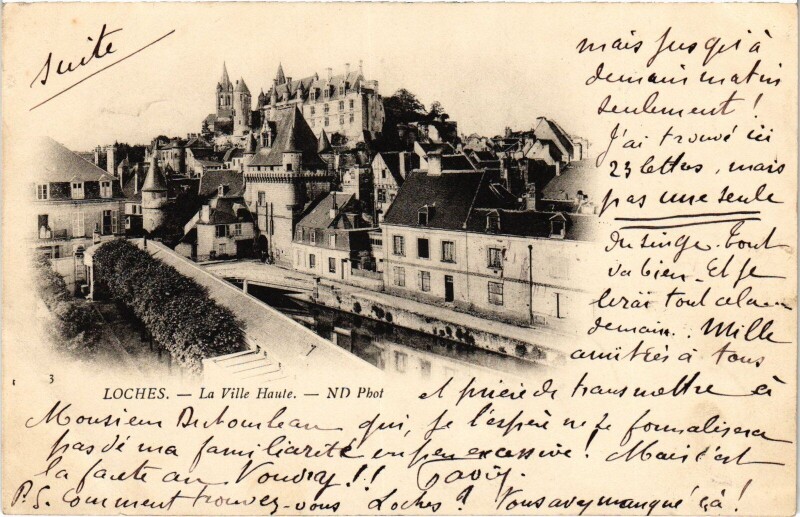 suite
mais jusqu'à
demain matin
seulement!
J'ai trouvé ici
23 lettres, mais
pas une seule
du singe. Tout
va bien. Et je
ferai tout cela
demain. Mille
amitiés à tous
3
LOCHES. — La Ville Haute. — ND Phot
et prière de transmettre à
Monsieur qui, je l'espère ne se formalisera
pas de ma familiarité un peu excessive! Mais c'est
la faute au Vouvray!!
P.S. Comment trouvez-vous Loches? Vous avez manqué çà!